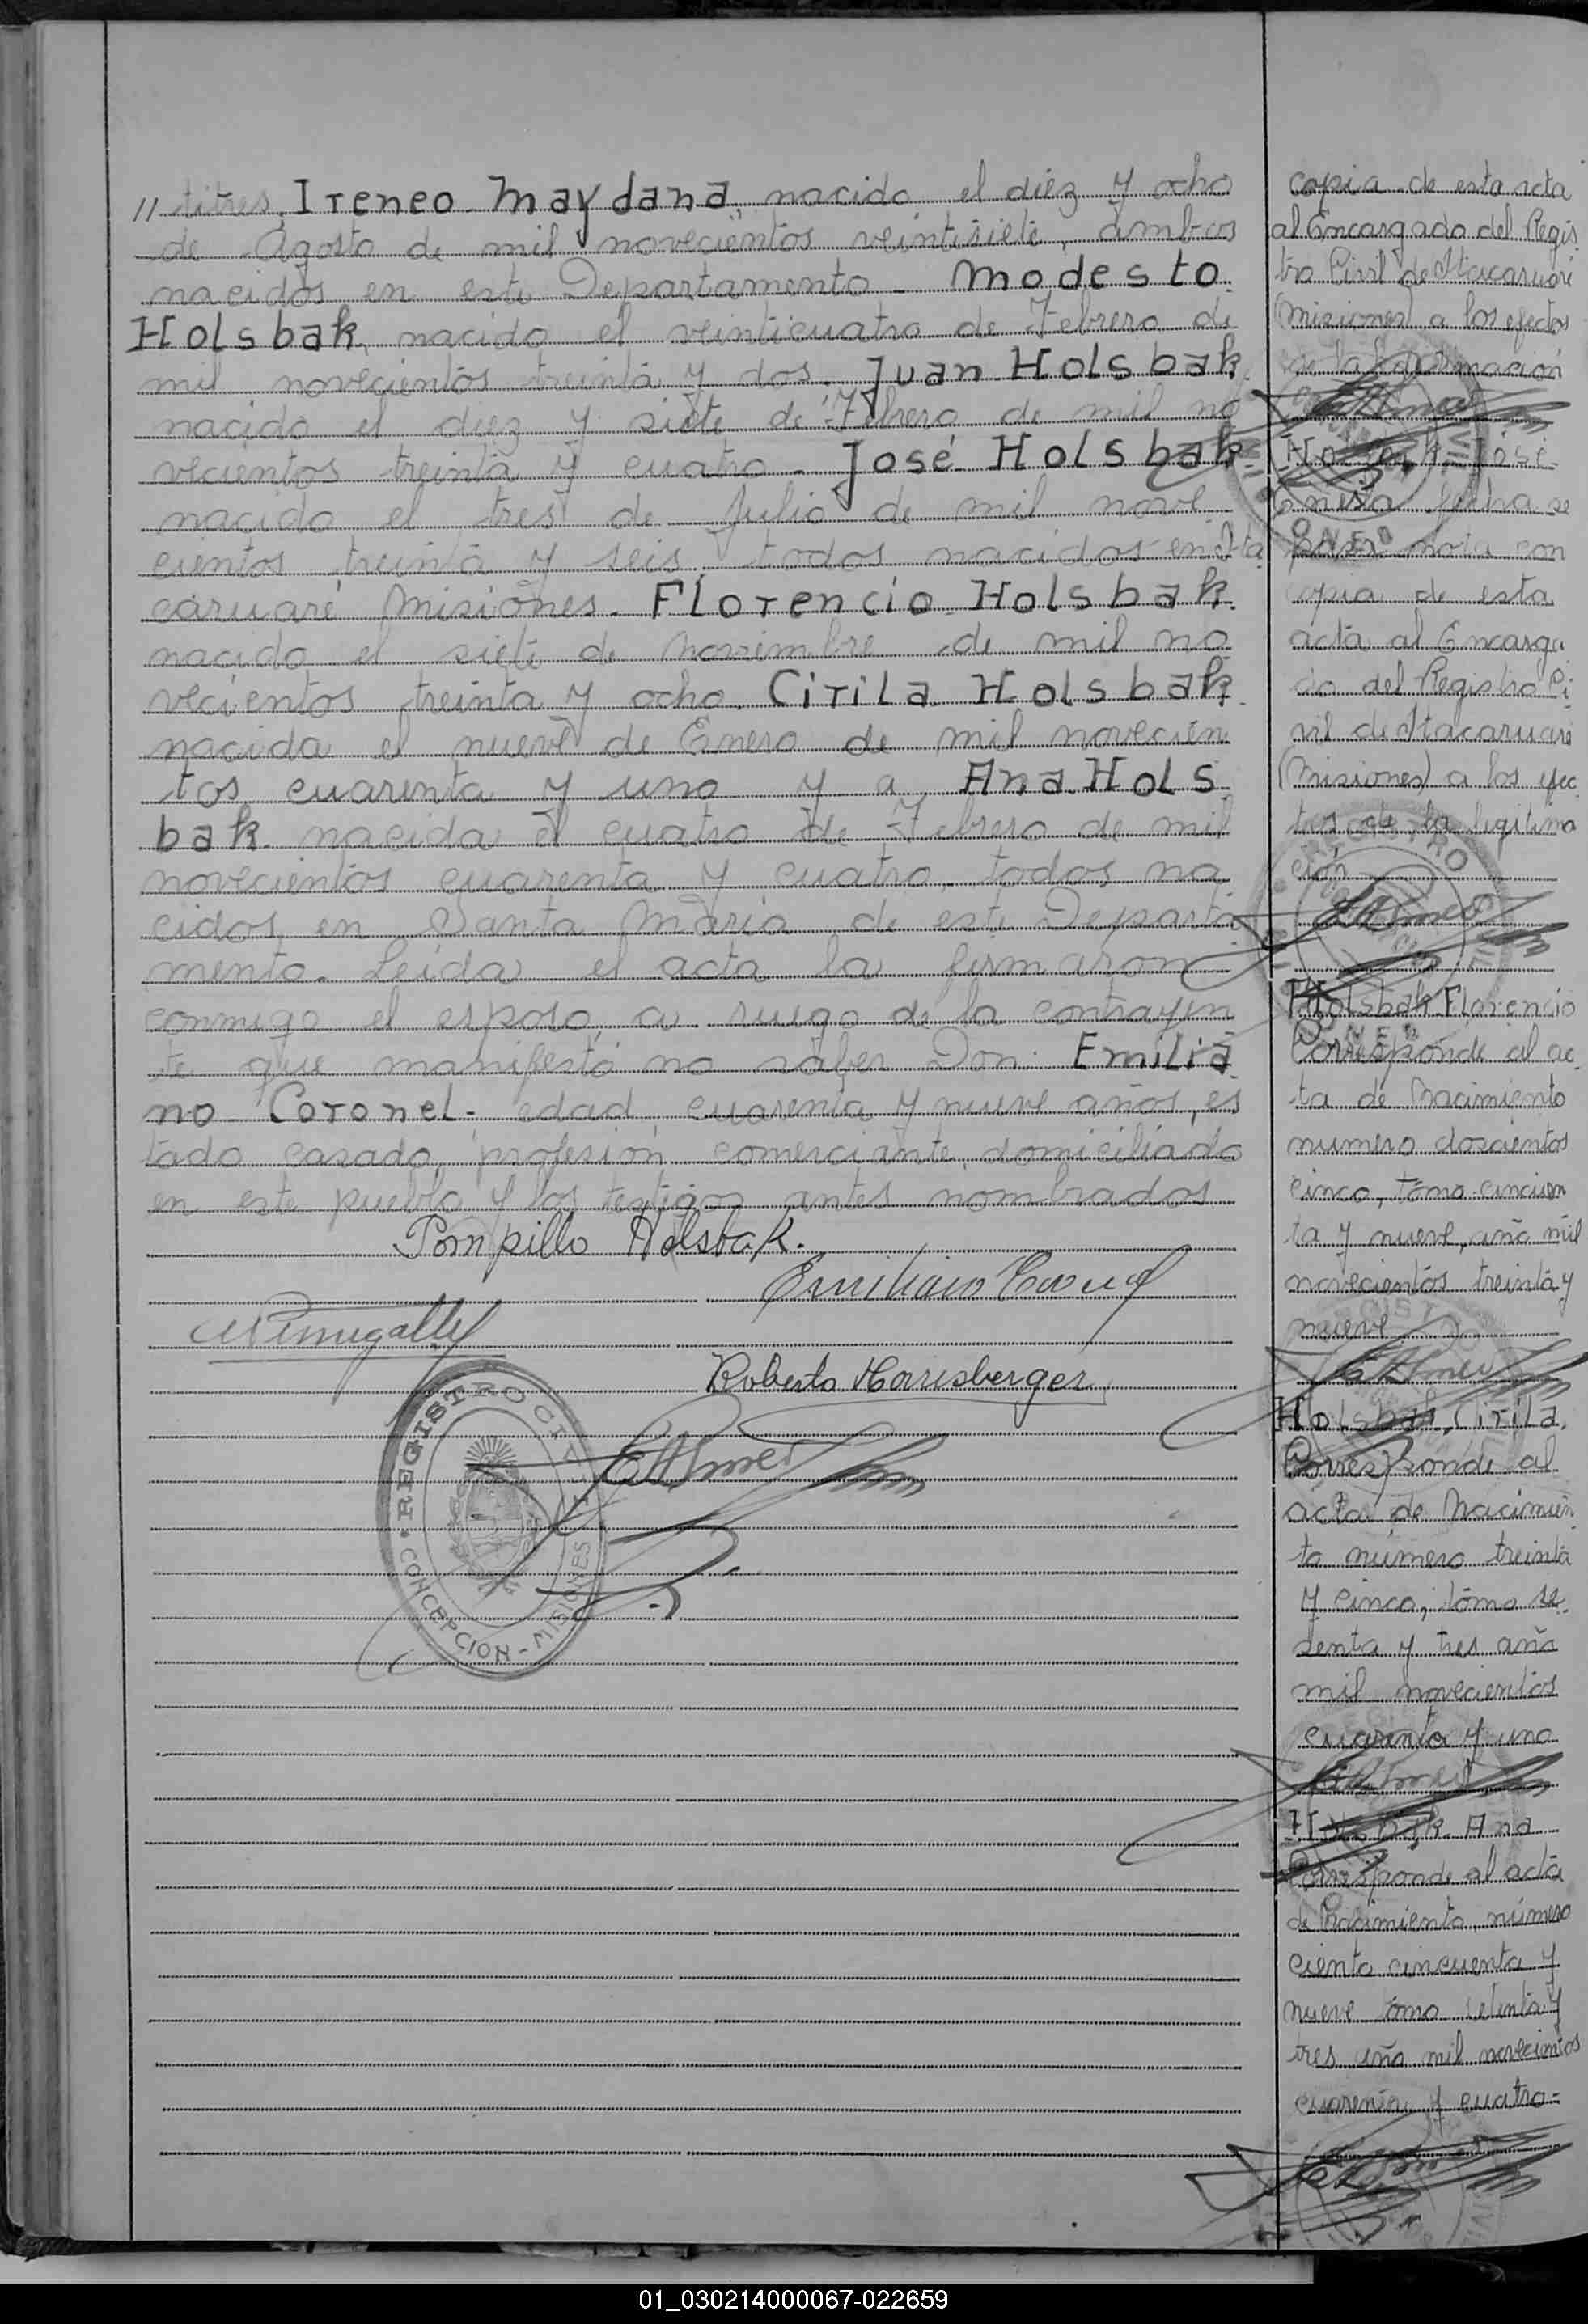 // titres. Ireneo Maydana, nacido el diéz y ocho
de Agosto de mil novecientos veintisiete, ambos
nacidos en este Departamento - Modesto
Holsbak, nacido el veinticuatro de Febrero de
mil novecientos treinta y dos. Juan Holsbak
nacido el diez y siete de Febrero de mil no
vecientos treinta y cuatro - José Holsbak
nacido el tres de Julio de mil nove
cientos treinta y seis, todos nacidos en Ita
caruaré Misiones. Florencio Holsbak
nacido el siete de Noviembre de mil no
vecientos treinta y ocho. Cirila Holsbak
nacida el nueve de Enero de mil novecien
tos cuarenta y uno y a Ana Hols
bak nacida el cuatro de Febrero de mil
novecientos cuarenta y cuatro, todos na
cidos en Santa María de este Departa
mento. Leída el acta la firmaron
conmigo el esposo, a ruego de la contrayen
te que manifestó no saber Don: Emilia
no Coronel - edad cuarenta y nueve años, es
tado casado, profesión comerciante, domiciliado
en este pueblo y los testigos antes nombrados
Pompillo Holsbak.
Emiliano Coronel
Roberto Harisberger
REGISTRO CIVIL
CONCEPCION - MISIONES
copia de esta acta
al Encargado del Regis
tro Civil de Itacaruaré
(Misiones) a los efectos
de la
José
En esta fecha se
pasa nota con
copia de esta
acta al Encarga
do del Registro Ci
vil de Itacaruaré
(Misiones) a los efec
tos de la legitima
ción
Holsbak Florencio
Corresponde al ac
ta de Nacimiento
numero doscientos
cinco, tómo cincuen
ta y nueve, año mil
novecientos treinta y
nueve
Holsbak, Cirila
Corresponde al
acta de Nacimien
to número treinta
y cinco, tómo se
senta y tres año
mil novecientos
cuarenta y uno
Holsbak Ana
Corresponde al acta
de Nacimiento, número
ciento cincuenta y
nueve tómo setenta y
tres año mil novecientos
cuarenta y cuatro =
01_030214000067-022659